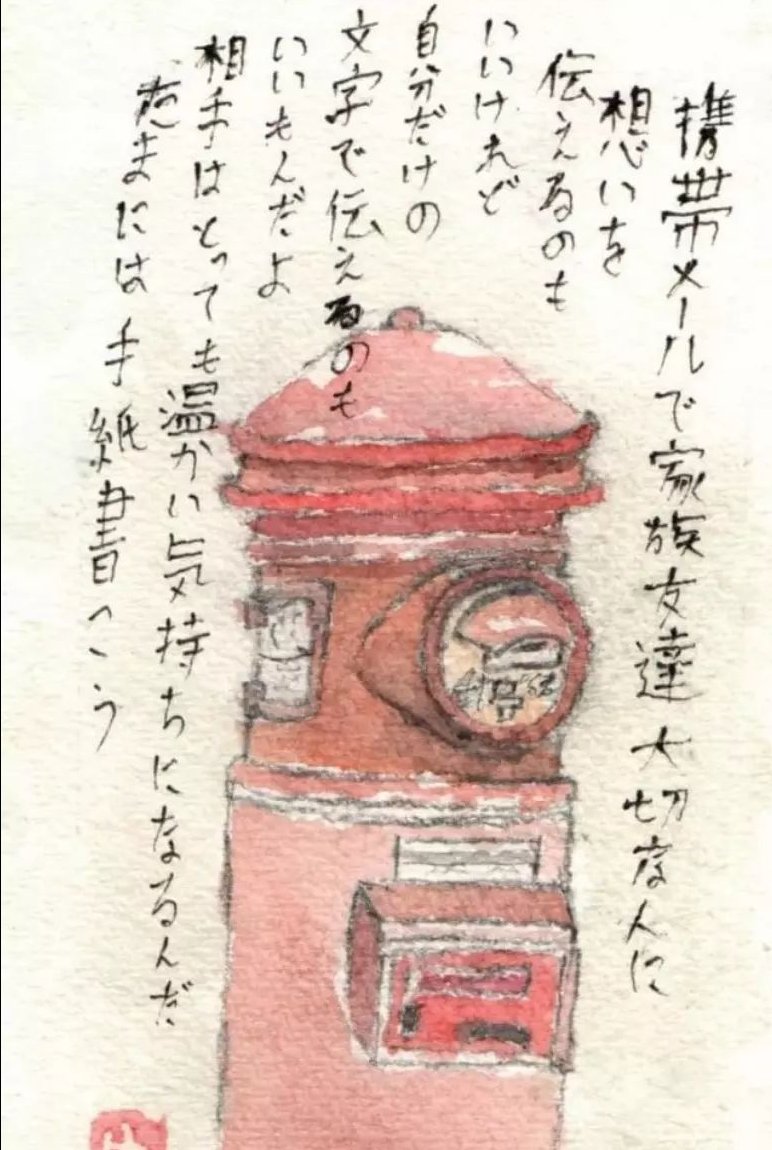 携帯メールで家族友達大切な人に
想いを
伝えるのも
いいけれど
自分だけの
文字で伝えるのも
いいもんだよ
相手はとっても温かい気持ちになるんだ
たまには手紙書こう